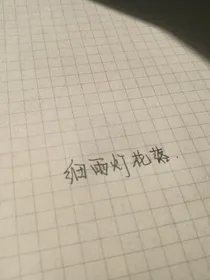 细雨灯花落.